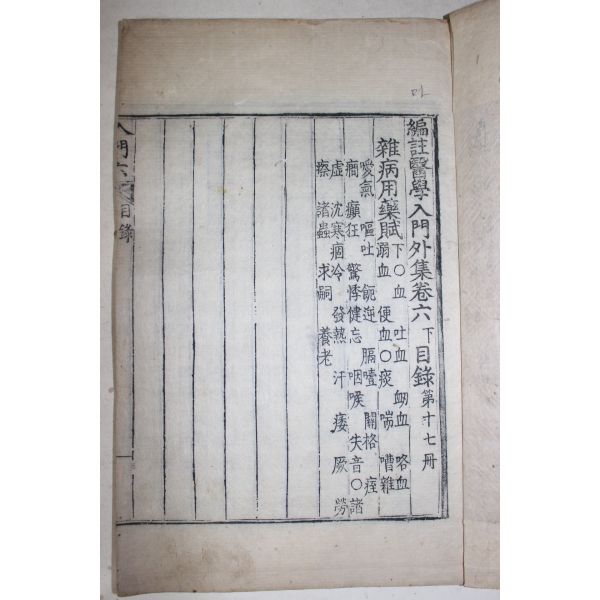 編註醫學入門外集卷六下目錄 第十七冊
雜病用藥賦
下○血 吐血 衂血 咯血
溺血 便血○痰 喘 嘈雜
噯氣 嘔吐 逆 膈噎 關格 痓
癇 癲狂 驚悸健忘 咽喉 失音○諸
虛 沈寒痼冷 發熱 汗 痿 厥 勞
瘵 諸蟲 求嗣 養老
入門六 目錄
一